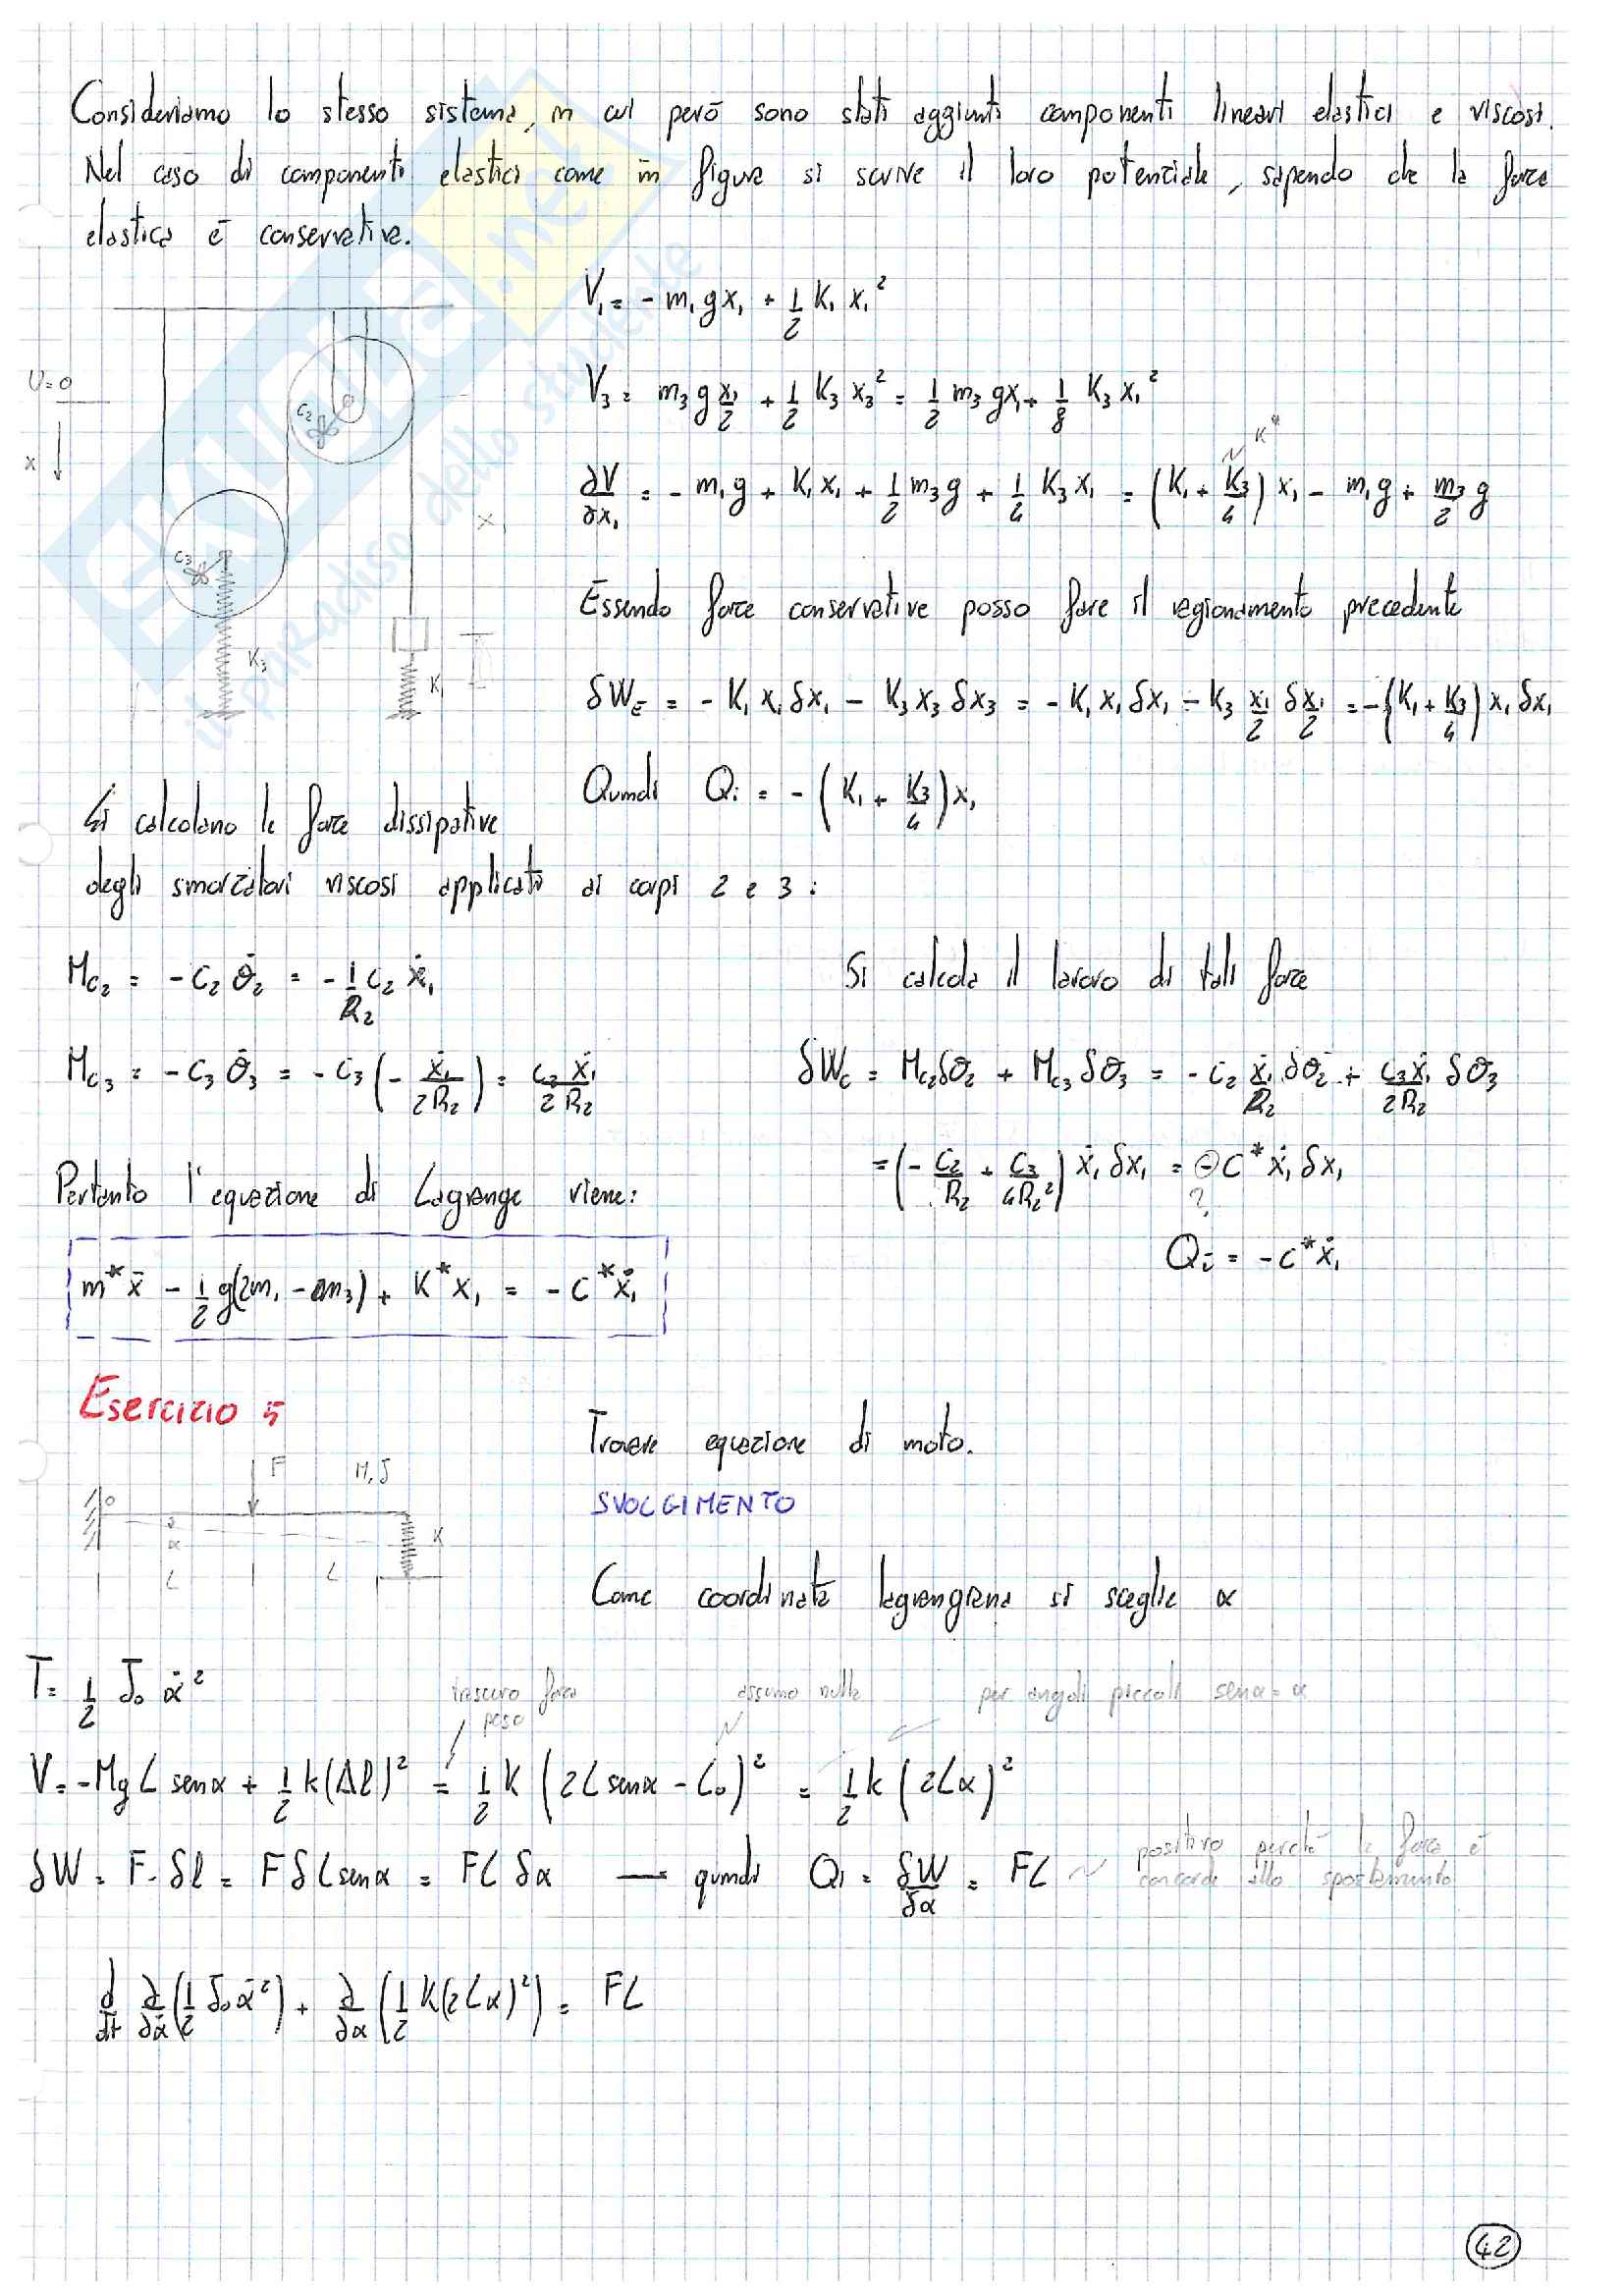 Consideriamo lo stesso sistema, in cui però sono stati aggiunti componenti lineari elastici e viscosi.
Nel caso di componenti elastici come in figura si scrive il loro potenziale, sapendo che la forza
elastica è conservativa.
V₁ = - m₁gx₁ + 1/2 K₁ x₁²
U=0
V₃ = m₃g x₁/2 + 1/2 K₃ x₃² = 1/2 m₃gx₁ + 1/8 K₃ x₁²
C₂
x
K*
∂V/∂x₁ = - m₁g + K₁x₁ + 1/2 m₃g + 1/4 K₃x₁ = (K₁ + K₃/4) x₁ - m₁g + m₃/2 g
x₁
C₃
Essendo forze conservative posso fare il ragionamento precedente
K₃
K₁
δW_E = - K₁x₁δx₁ - K₃x₃δx₃ = - K₁x₁δx₁ - K₃ x₁/2 δx₁/2 = -(K₁ + K₃/4) x₁δx₁
Quindi Qᵢ = - (K₁ + K₃/4)x₁
Si calcolano le forze dissipative
degli smorzatori viscosi applicati ai corpi 2 e 3:
M_C₂ = - C₂ θ̇₂ = - 1/R₂ C₂ ẋ₁
Si calcola il lavoro di tali forze
M_C₃ = - C₃ θ̇₃ = - C₃ (- ẋ₁/2R₂) = C₃ẋ₁/2R₂
δW_C = M_C₂δθ₂ + M_C₃δθ₃ = - C₂ ẋ₁/R₂ δθ₂ + C₃ẋ₁/2R₂ δθ₃
= (- C₂/R₂ + C₃/4R₂²) ẋ₁ δx₁ = ⊖C* ẋ₁ δx₁
?
Pertanto l'equazione di Lagrange viene:
Qᵢ = - C*ẋ₁
m*ẍ - 1/2 g(2m₁ - m₃) + K*x₁ = - C*ẋ₁
Esercizio 5
Trovare equazione di moto.
F
M, J
O
SVOLGIMENTO
α
K
L
L
Come coordinata lagrangiana si sceglie α
T = 1/2 J₀ α̇²
trascuro forza
peso
assumo nulla
per angoli piccoli senα = α
V = - MgL senα + 1/2 k(Δl)² = 1/2 K (2L senα - L₀)² = 1/2 k (2Lα)²
δW = F · δl = F δL senα = FL δα — quindi Q₁ = δW/δα = FL
positivo perché la forza è
concorde allo spostamento
d/dt ∂/∂α̇ (1/2 J₀α̇²) + ∂/∂α (1/2 K(2Lα)²) = FL
42
SKUOLA.net
il paradiso dello studente